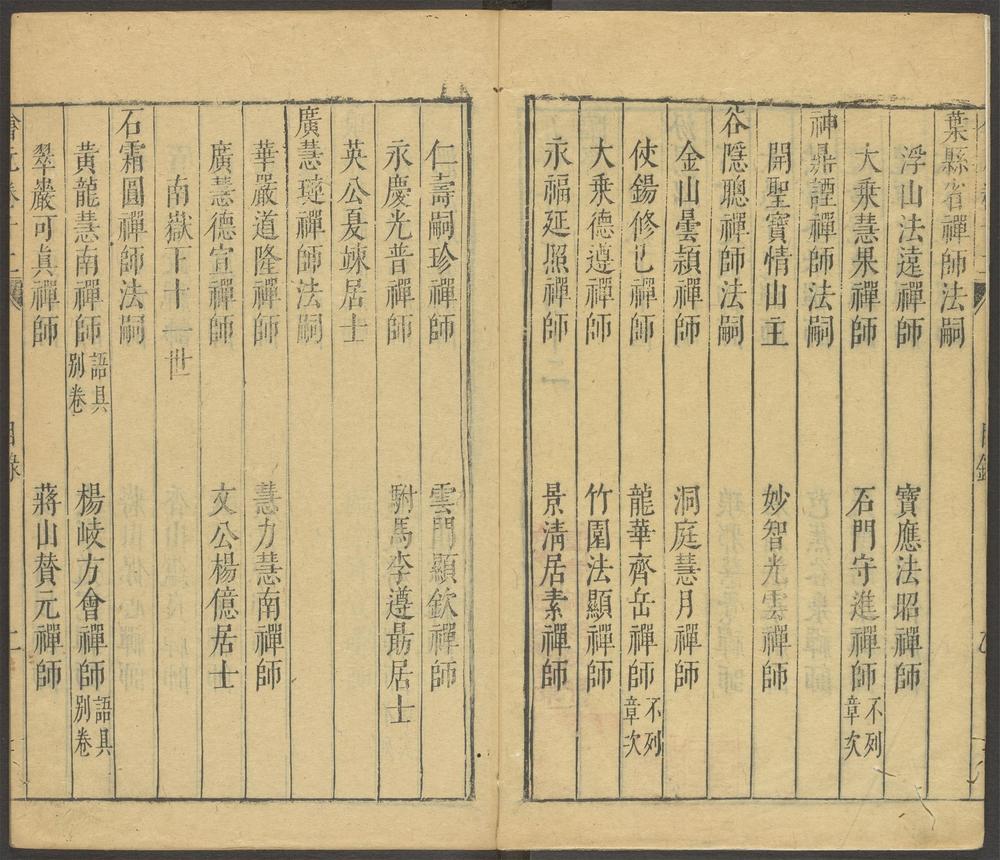 葉縣省禪師法嗣
浮山法遠禪師 寶應法昭禪師
大乘慧果禪師 石門守進禪師 不列章次
神鼎諲禪師法嗣
開聖寶情山主 妙智光雲禪師
谷隱聰禪師法嗣
金山曇穎禪師 洞庭慧月禪師
仗錫修己禪師 龍華齊岳禪師 不列章次
大乘德遵禪師 竹園法顯禪師
永福延照禪師 景清居素禪師
仁壽嗣珍禪師 雲門顯欽禪師
永慶光普禪師 駙馬李遵勗居士
英公夏竦居士
廣慧璉禪師法嗣
華嚴道隆禪師 慧力慧南禪師
廣慧德宣禪師 文公楊億居士
南嶽下十一世
石霜圓禪師法嗣
黃龍慧南禪師 語具別卷 楊岐方會禪師 語具別卷
翠巖可真禪師 蔣山贊元禪師